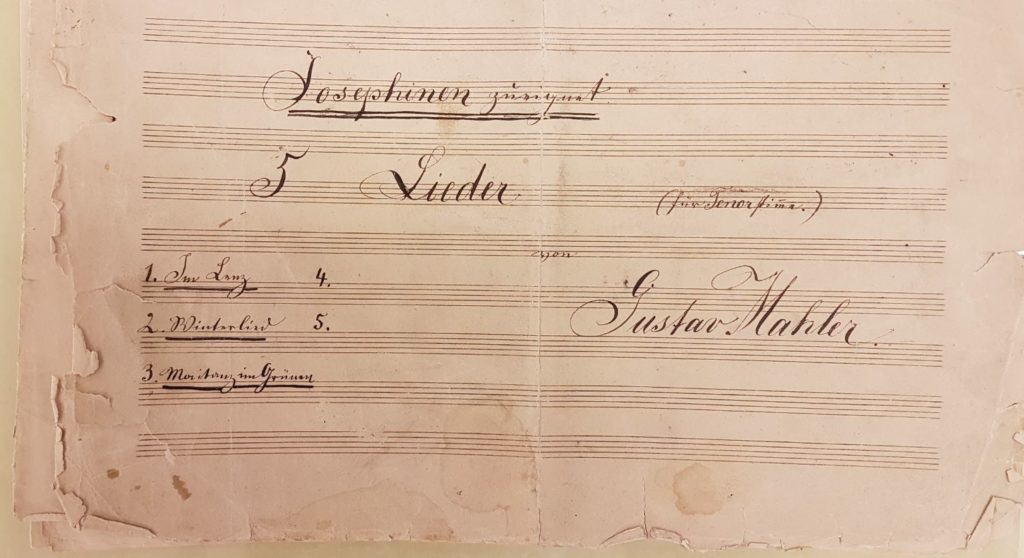 Josephinen zueignet
5 Lieder
(für Tenorstimme.)
von
Gustav Mahler.
1. Im Lenz
2. Winterlied
3. Maitanz im Grünen
4.
5.